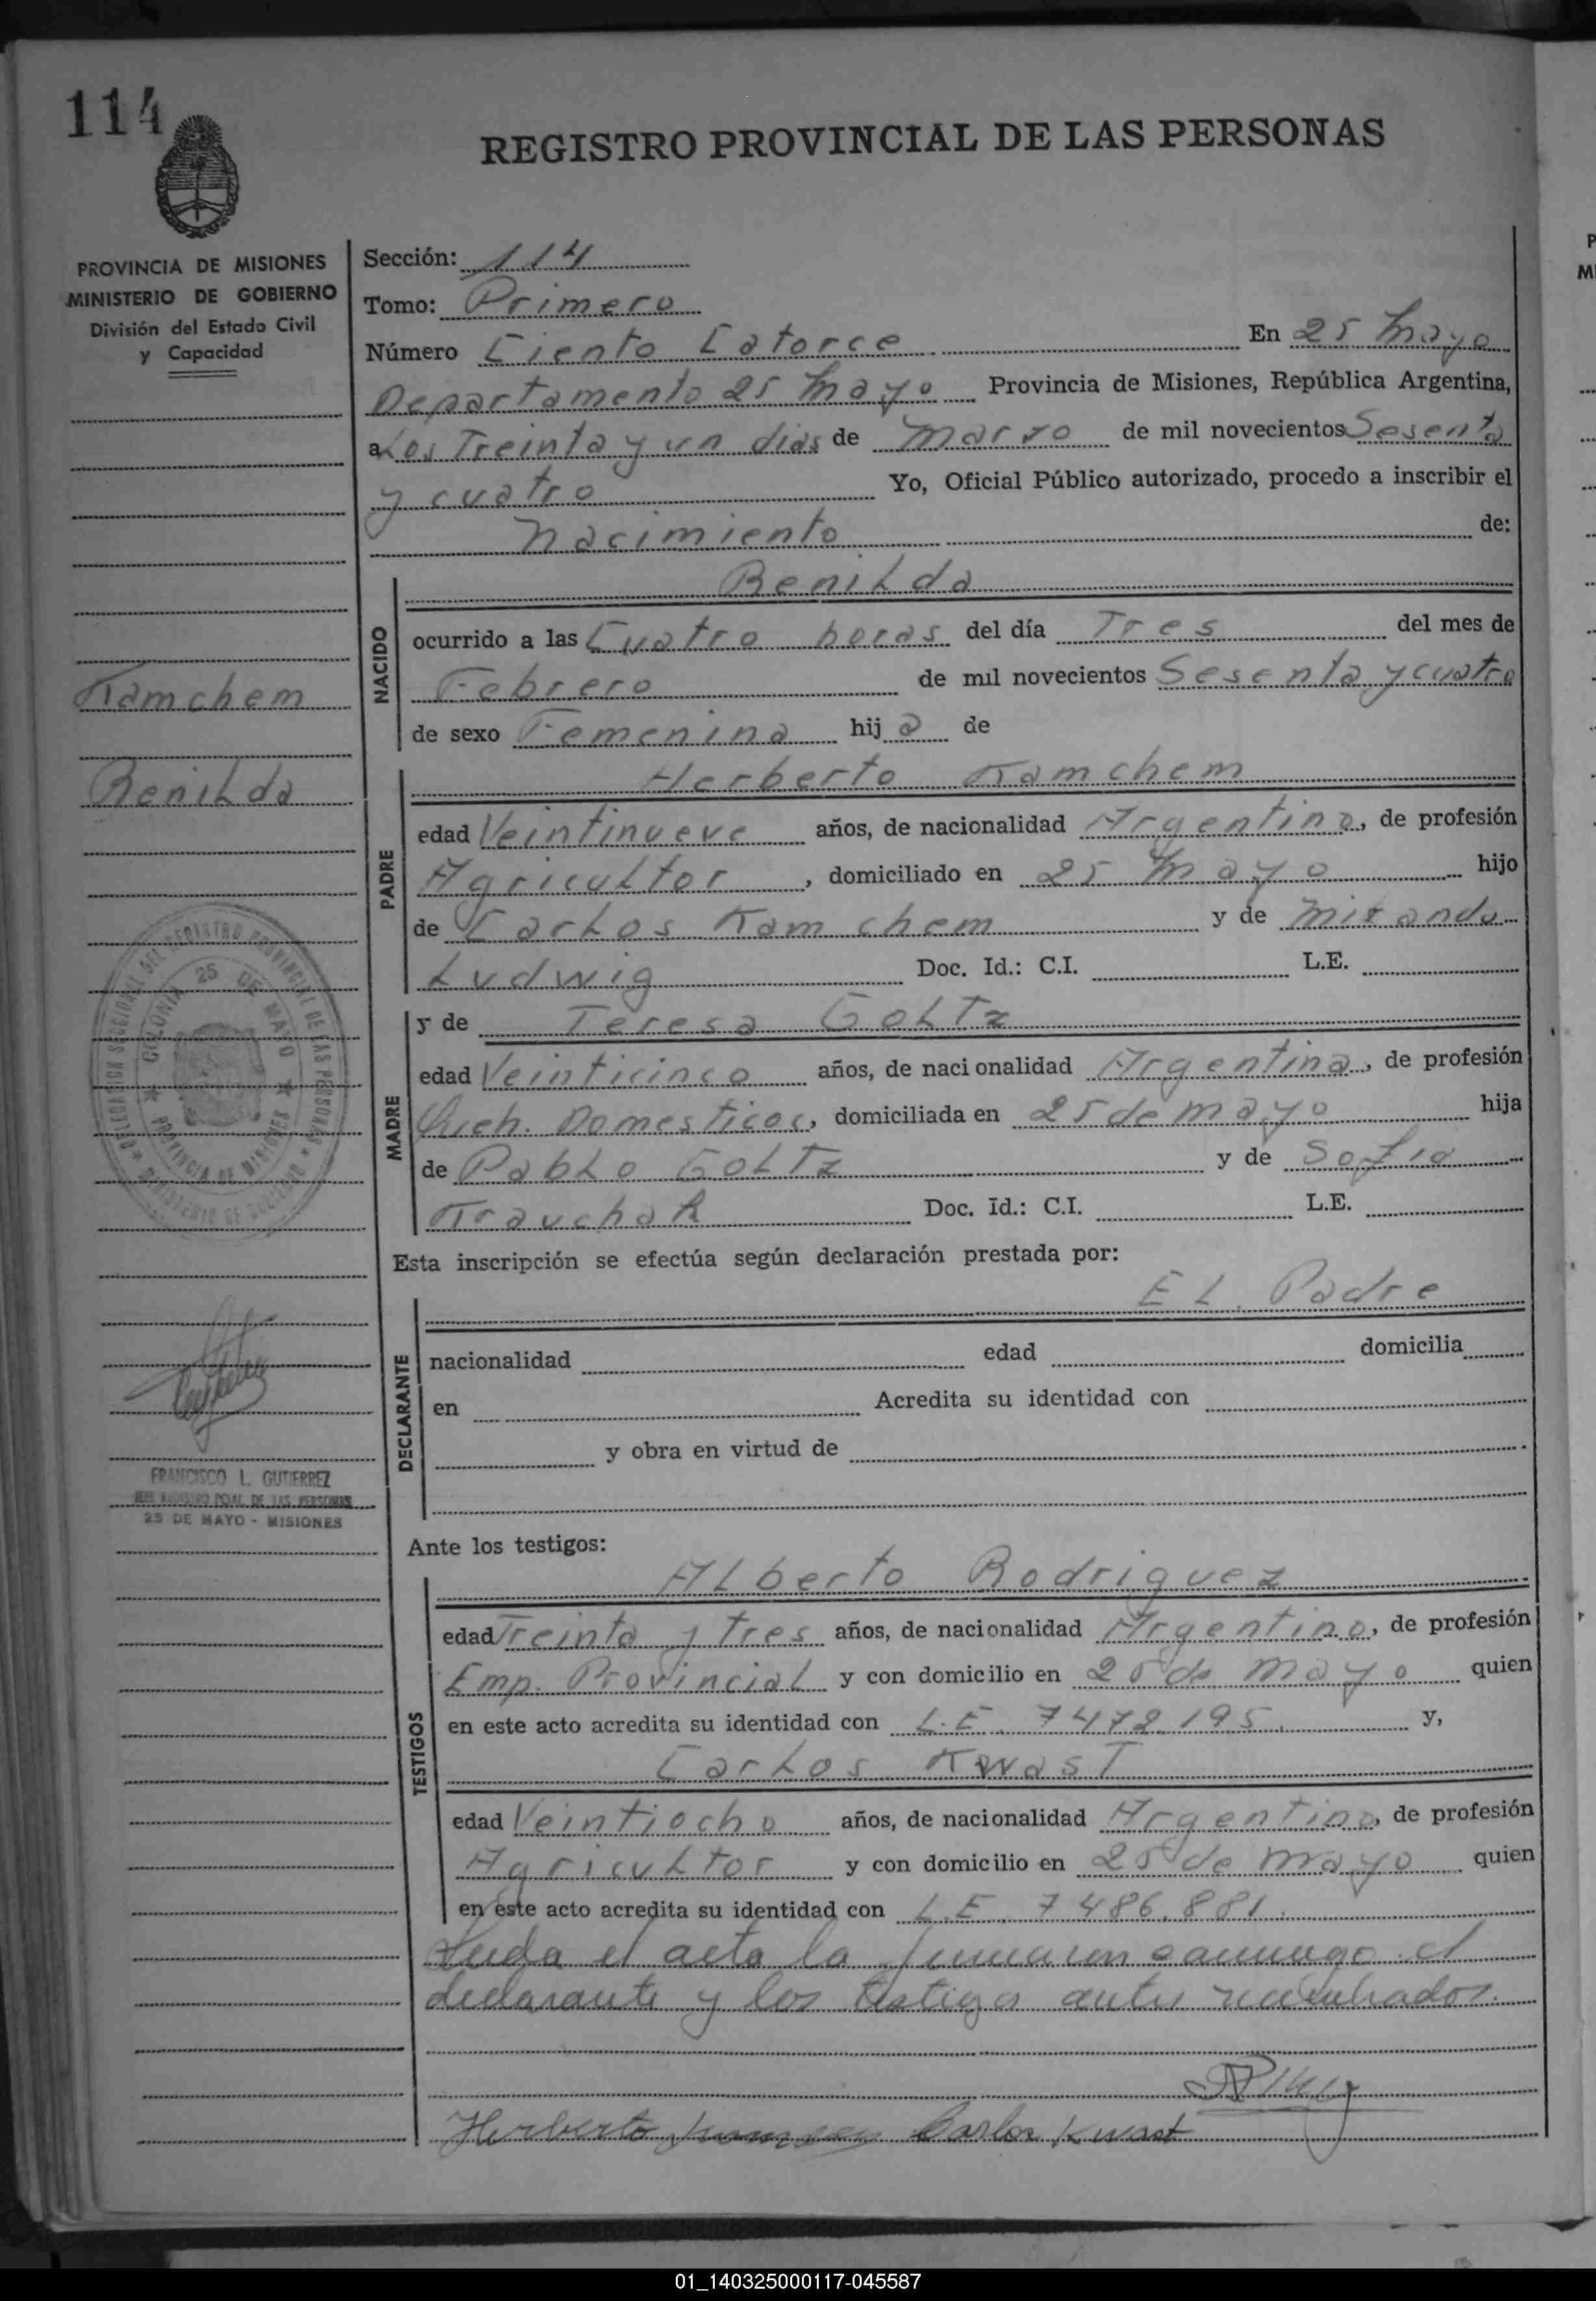 114
REGISTRO PROVINCIAL DE LAS PERSONAS
PROVINCIA DE MISIONES
MINISTERIO DE GOBIERNO
División del Estado Civil
y Capacidad
Kamchem
Renilda
DELEGACION SECCIONAL DEL REGISTRO PROVINCIAL DE LAS PERSONAS
COLONIA 25 DE MAYO
PROVINCIA DE MISIONES
MINISTERIO DE GOBIERNO
FRANCISCO L. GUTIERREZ
JEFE REGISTRO PCIAL. DE LAS PERSONAS
25 DE MAYO - MISIONES
Sección: 114
Tomo: Primero
Número Ciento Catorce En 25 Mayo
Departamento 25 Mayo Provincia de Misiones, República Argentina,
a Los Treinta y un dias de Marzo de mil novecientos Sesenta
y cuatro Yo, Oficial Público autorizado, procedo a inscribir el
Nacimiento de:
NACIDO
Renilda
ocurrido a las Cuatro horas del día Tres del mes de
Febrero de mil novecientos Sesenta y cuatro
de sexo Femenina hij a de
PADRE
Herberto Kamchem
edad Veintinueve años, de nacionalidad Argentina, de profesión
Agricultor, domiciliado en 25 Mayo hijo
de Carlos Kamchem y de
Ludwig Doc. Id.: C.I. L.E.
MADRE
y de Teresa Goltz
edad Veinticinco años, de nacionalidad Argentina, de profesión
Queh. Domesticos, domiciliada en 25 de Mayo hija
de Pablo Goltz y de Sofia
Doc. Id.: C.I. L.E.
Esta inscripción se efectúa según declaración prestada por:
DECLARANTE
EL Padre
nacionalidad edad domicilia
en Acredita su identidad con
y obra en virtud de
Ante los testigos:
TESTIGOS
Alberto Rodriguez
edad Treinta y tres años, de nacionalidad Argentino, de profesión
Emp. Provincial y con domicilio en 25 de Mayo quien
en este acto acredita su identidad con L.E. 7472.195. y,
Carlos Kwast
edad Veintiocho años, de nacionalidad Argentino, de profesión
Agricultor y con domicilio en 25 de Mayo quien
en este acto acredita su identidad con L.E. 7486.881.
Leida el acta la firmaron conmigo el
declarante y los testigos antes nombrados.
Herberto Carlos Kwast
01_140325000117-045587